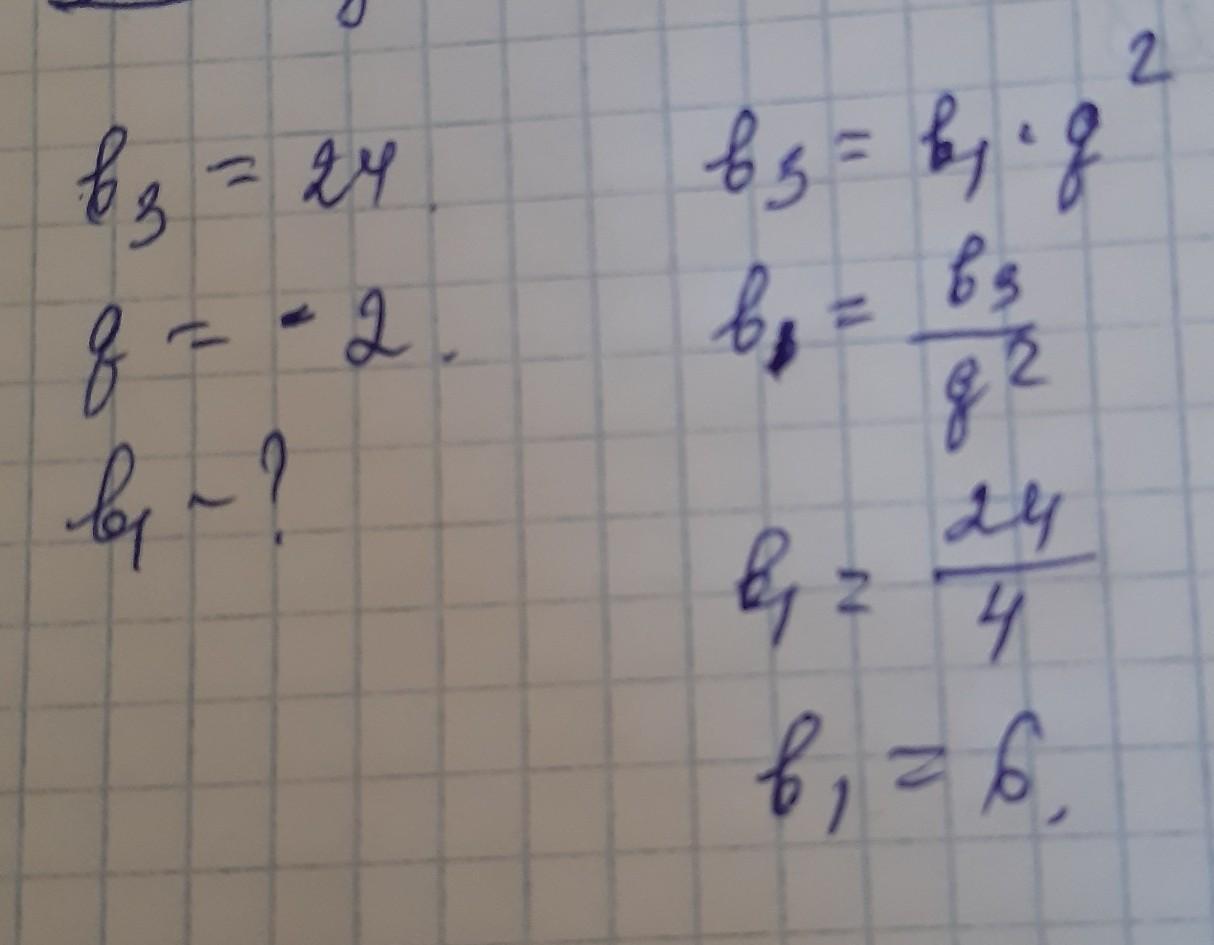 b₃ = 24.
q = - 2.
b₁ - ?
b₃ = b₁ · q²
b₁ = b₃ / q²
b₁ = 24 / 4
b₁ = 6.